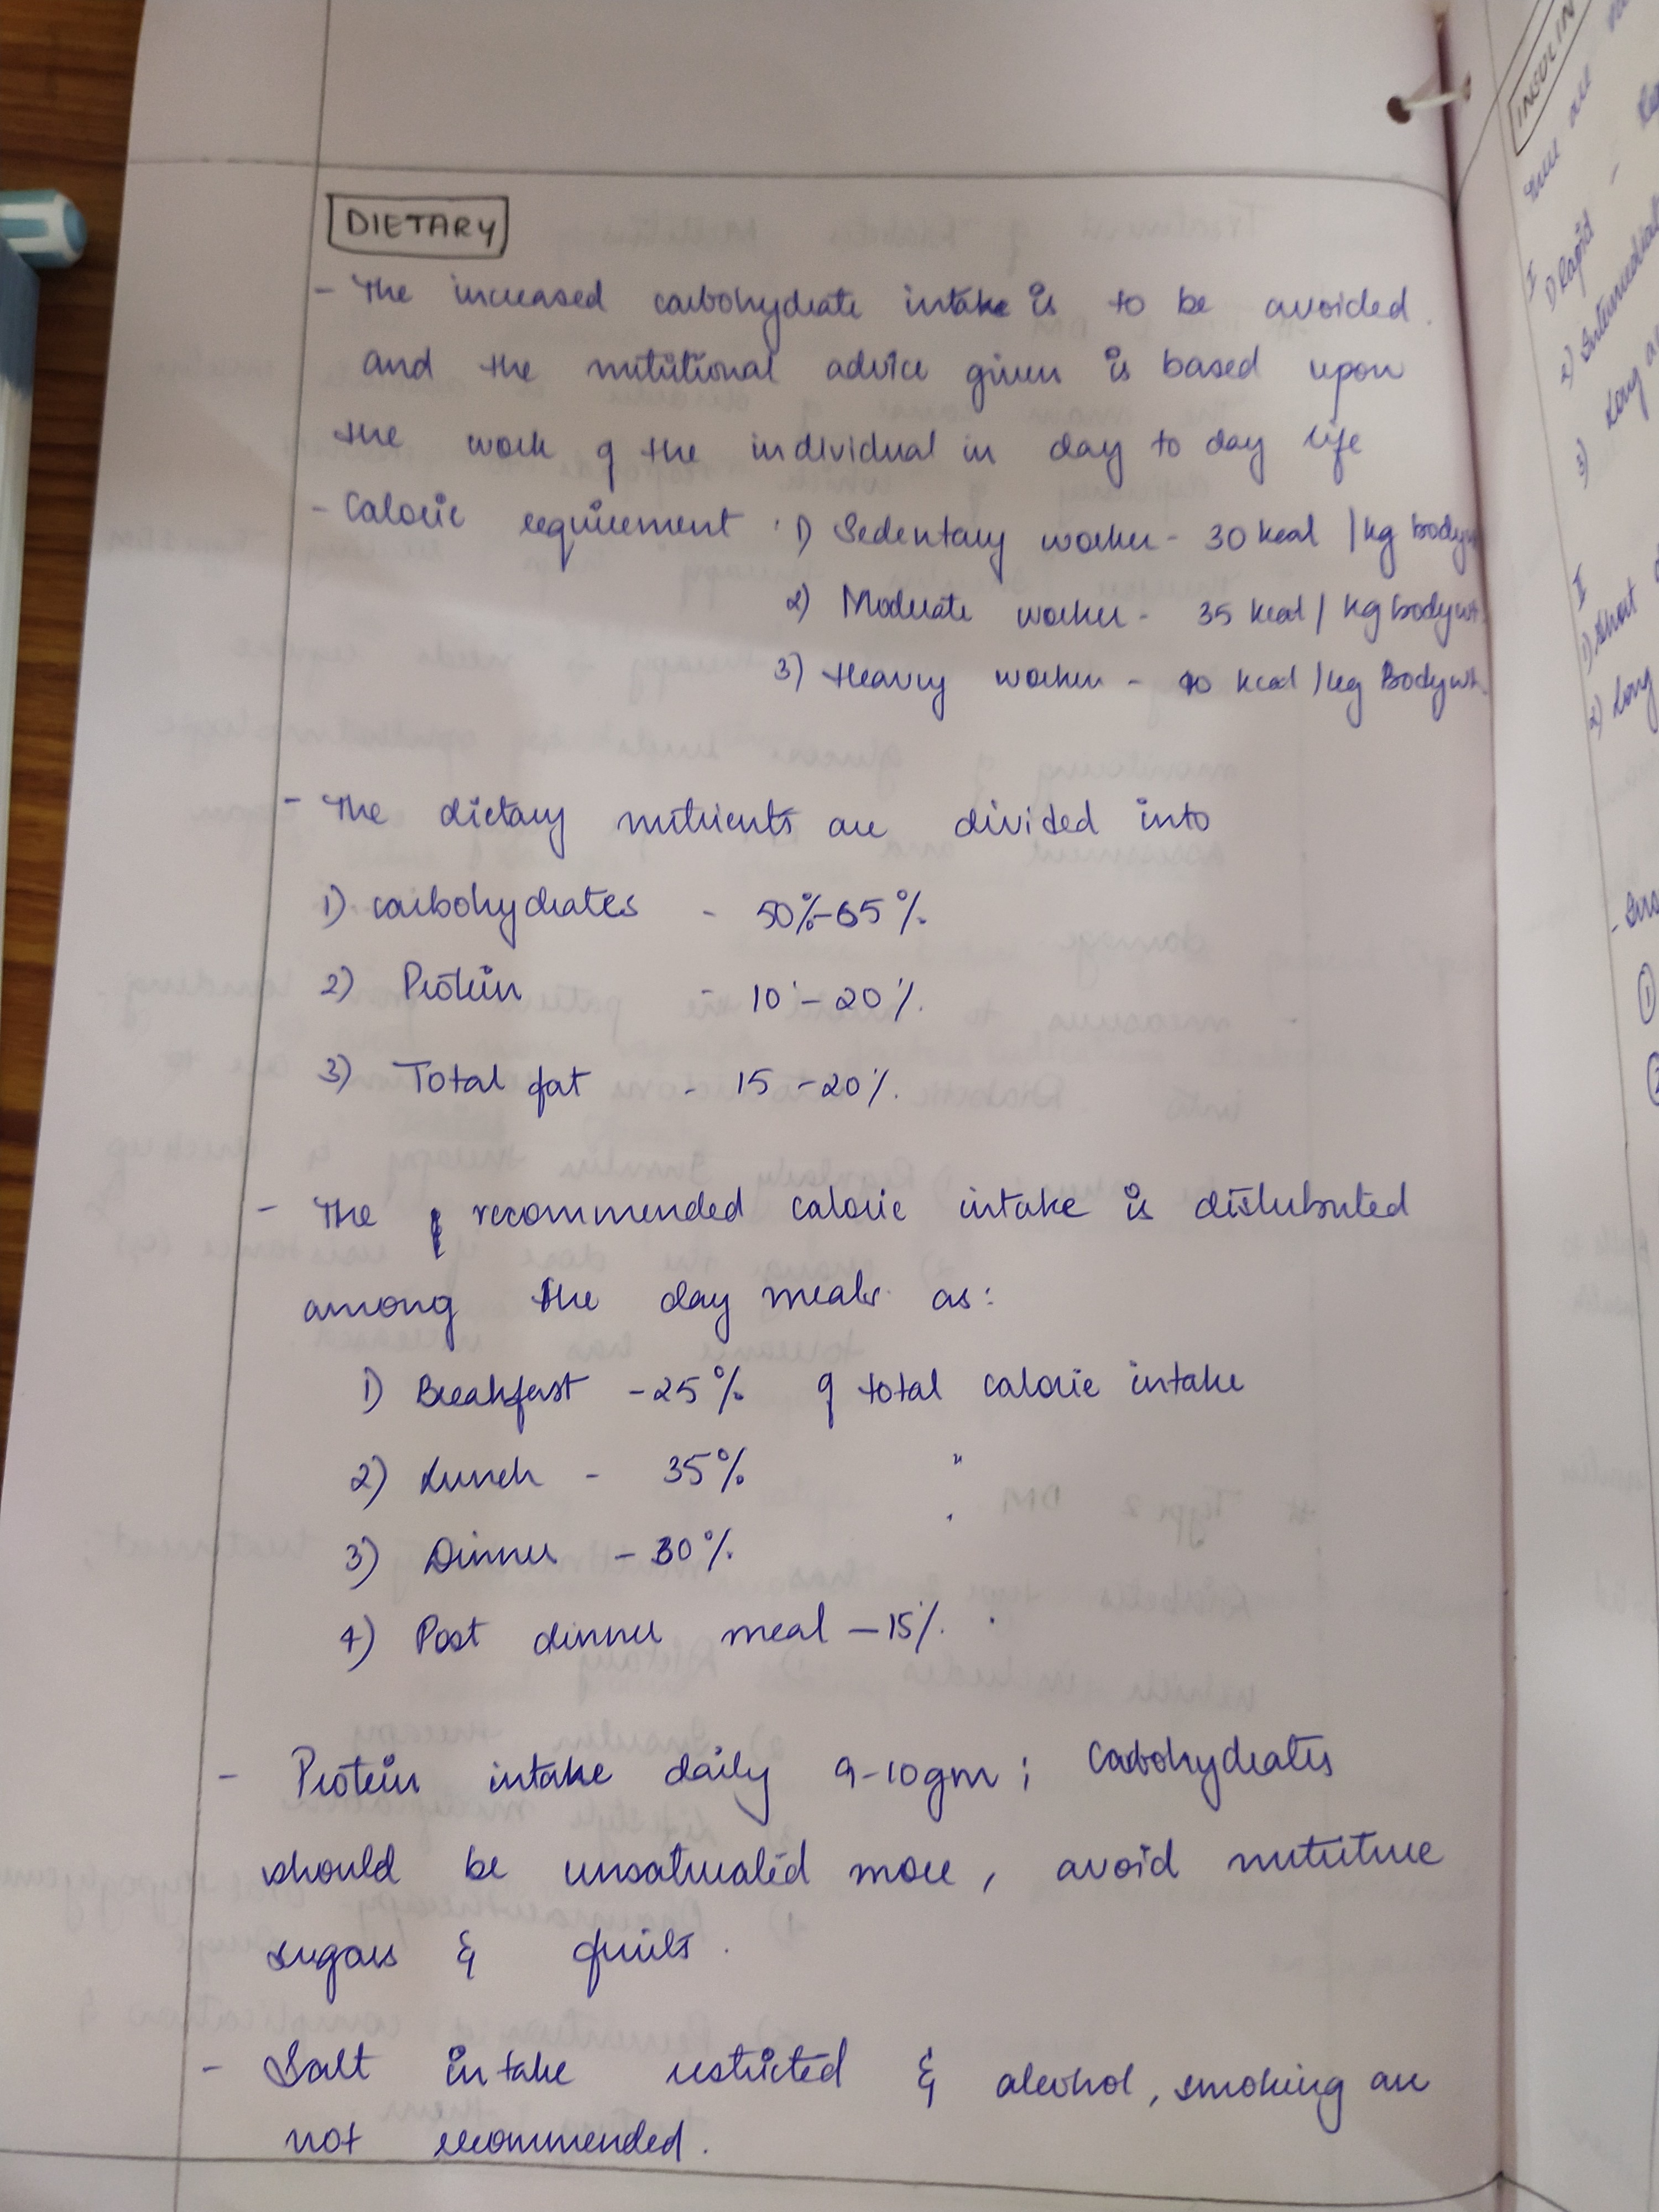 DIETARY
- The increased carbohydrate intake is to be avoided.
and the nutritional advice given is based upon
the work of the individual in day to day life
- Caloric requirement : 1) Sedentary worker - 30 kcal / kg bodyw
2) Moderate worker - 35 kcal / kg bodywt.
3) Heavy worker - 40 kcal / kg Bodywt.
- The dietary nutrients are divided into
1) carbohydrates - 50%-65%
2) Protein - 10 - 20%.
3) Total fat - 15 - 20%.
- The recommended calorie intake is distributed
among the day meals as:
1) Breakfast - 25% of total calorie intake
2) Lunch - 35% "
3) Dinner - 30%
4) Post dinner meal - 15%.
- Protein intake daily 9-10gm ; Carbohydrates
should be unsaturated more, avoid
sugars & fruits.
- Salt intake restricted & alcohol, smoking are
not recommended.
INSULIN
There are
I
1) Rapid -
2) Intermediat
3) Long a
I
1) Short
2) Long
①